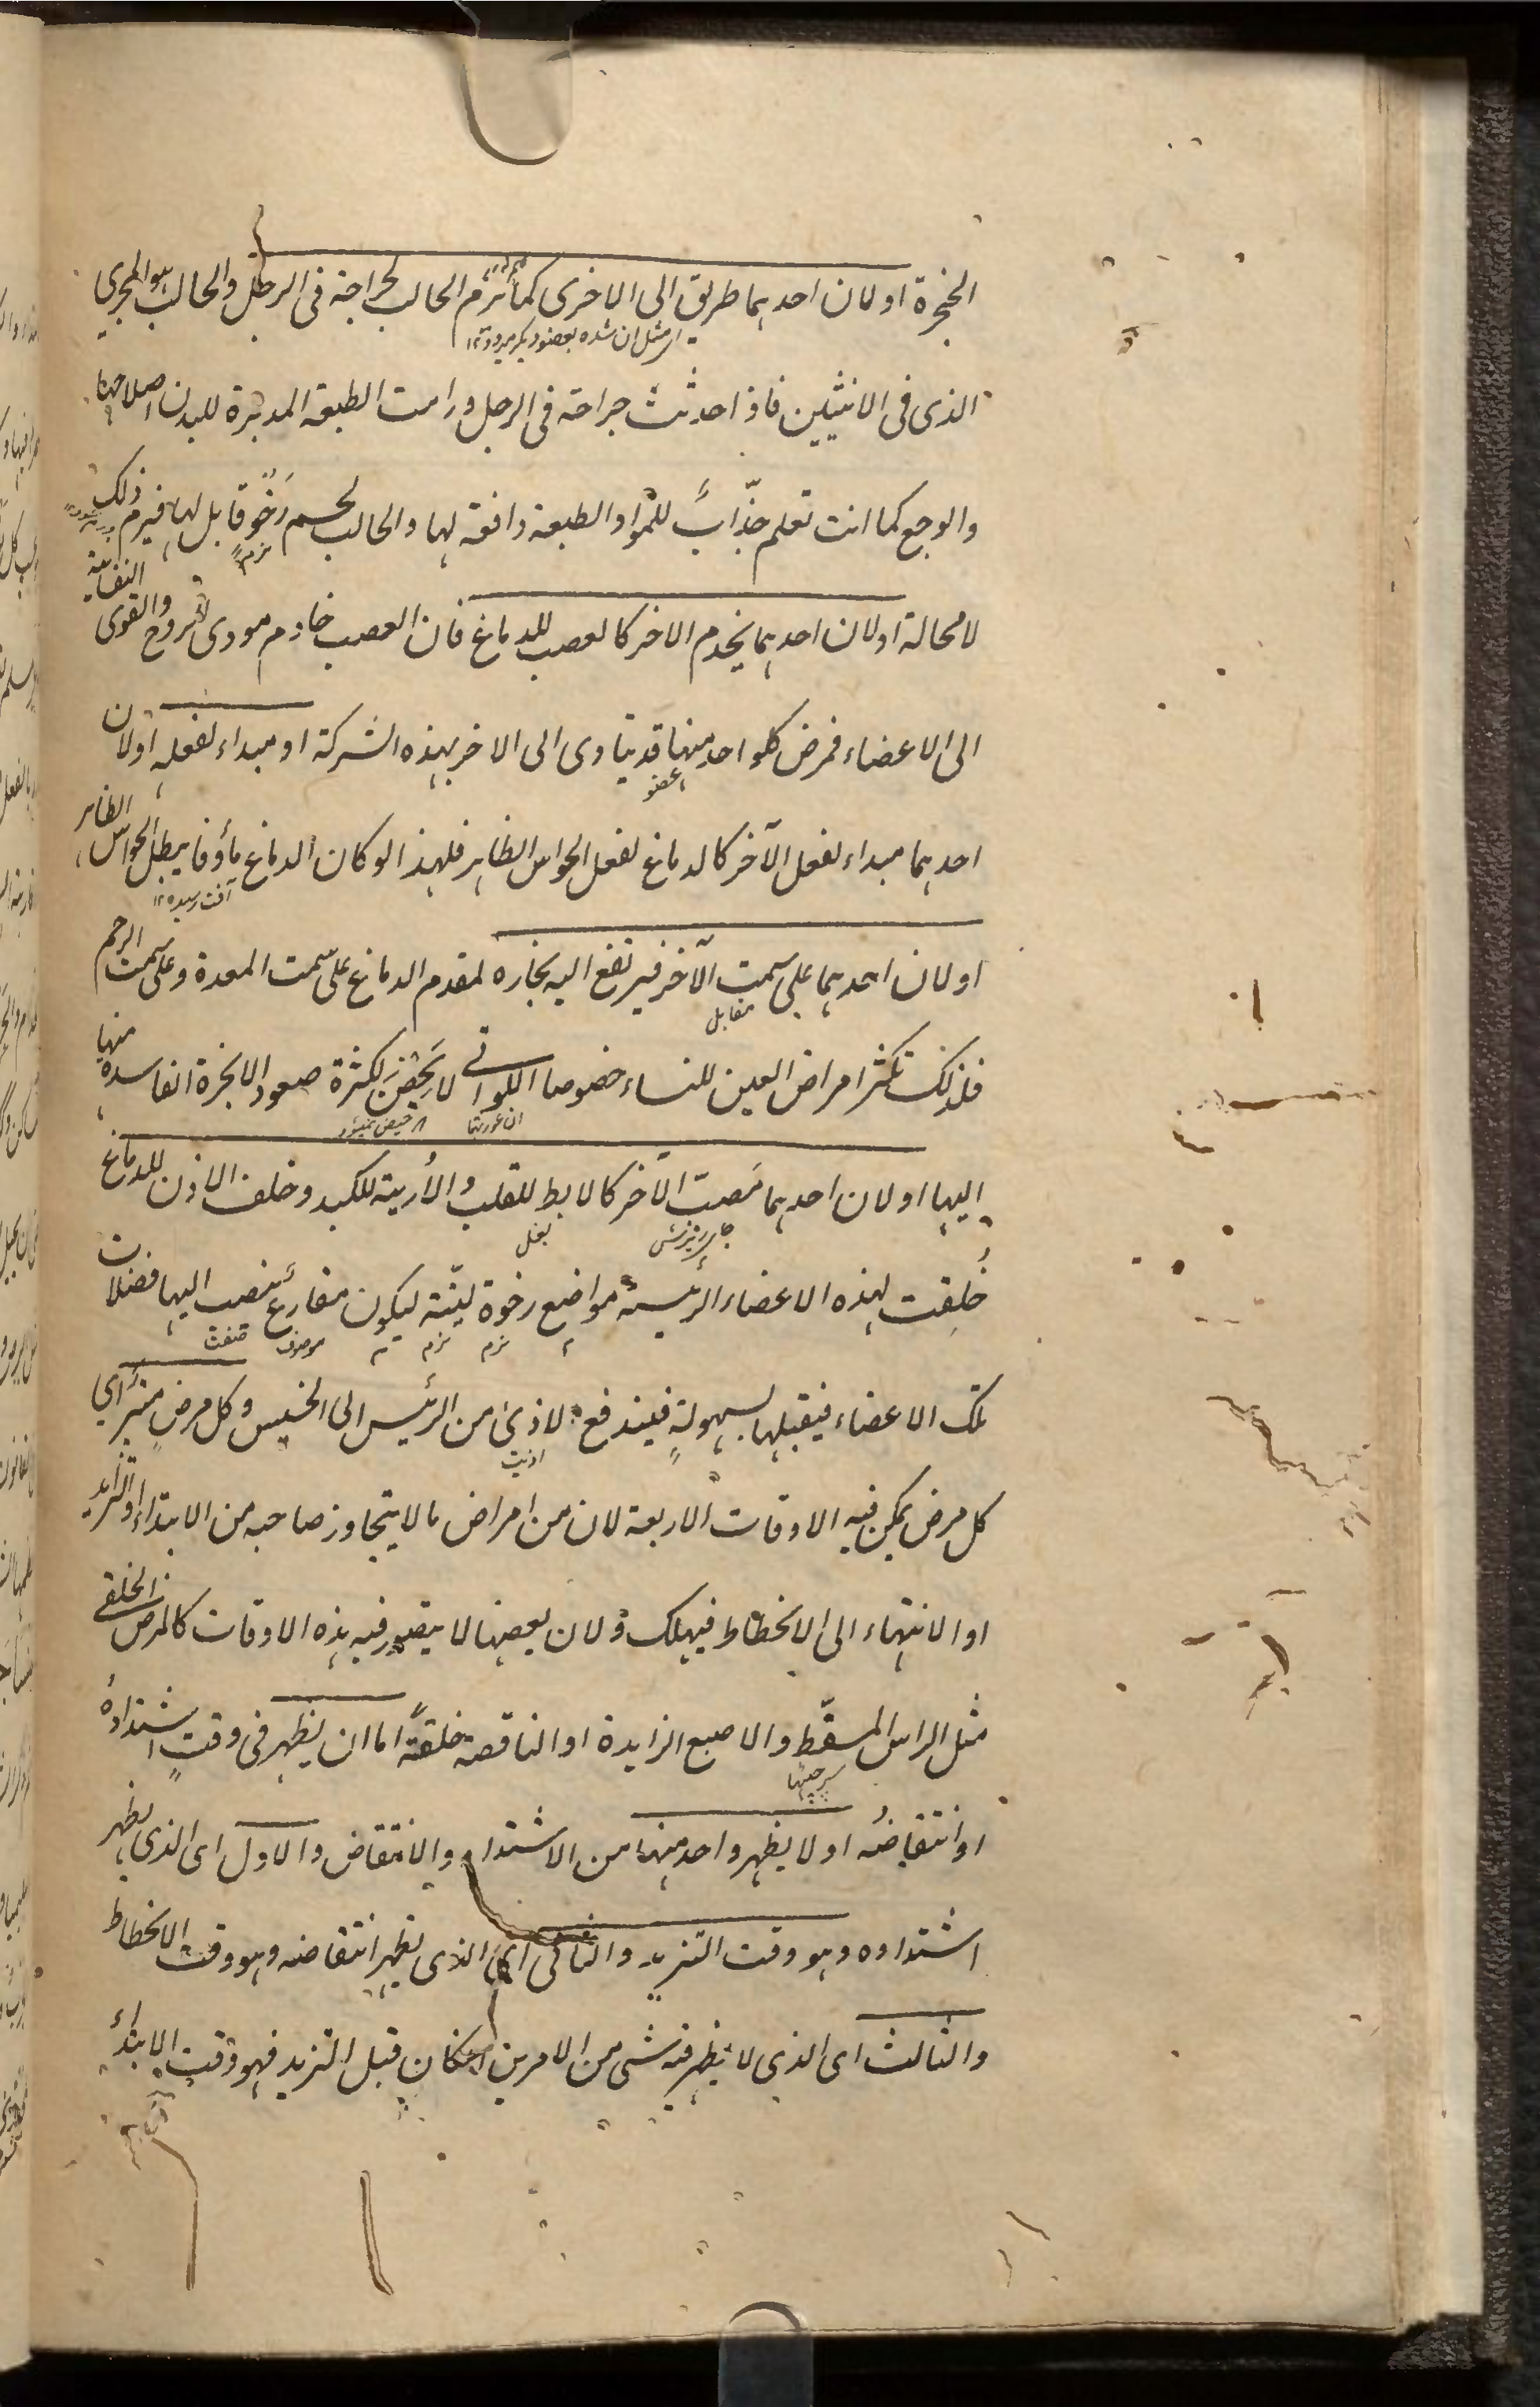 الحنجرة او لان احدهما طريق الى الاخرى كما يرم الحالب لجراحة فى الرجل والحالب هو المجرى
الذى فى الانثيين فاذا حدثت جراحة فى الرجل ورامت الطبيعة المدبرة للبدن اصلاحها
والوجع كما انت تعلم جذّابٌ للمواد والطبيعة دافعة لها والحالب لحم رَخْو قابل لها فيرم ذلك
نرم
لا محالة او لان احدهما يخدم الاخر كالعصب للدماغ فان العصب خادم مودى للروح والقوى النفسانية
الى الاعضاء فمرض كلواحد منهما قد يتادى الى الاخر بهذه الشركة او مبداء لفعله او لان
عضو
احدهما مبداء لفعل الآخر كالدماغ لفعل الحواس الظاهر فلهذا لو كان الدماغ مأوفا يبطل الحواس الظاهر
آفت رسيده ١٢
او لان احدهما على سمت الآخر فيرتفع اليه بخاره لمقدم الدماغ على سمت المعدة وعلى سمت الرحم
مقابل
فلذلك تكثر امراض العين للنساء خصوصا اللواتى لا يَحِضْنَ لكثرة صعود الابخرة الفاسدة منها
اليها او لان احدهما مَصبّ الآخر كالابط للقلب والأربية للكبد وخلف الاذن للدماغ
جاى ريزش بغل
خُلِقت لهذه الاعضاء الرئيسة مواضع رخوة ليّنة ليكون مفارغ ينصب اليها فضلات
نرم نرم موصوف صفت
تلك الاعضاء فيقبلها بسهولةٍ فيندفع الاذىٰ من الرئيس الى الخسيس وكل مرض متبر اى
اذيت
كل مرض يمكن فيه الاوقات الاربعة لان من امراض ما لا يتجاوز صاحبه من الابتداء او التزايد
او الانتهاء الى الانحطاط فيهلك ولان بعضها لا يتصور فيه هذه الاوقات كالمرض الخلقى
مثل الراس المسقّط والاصبع الزايدة او الناقصة خلقةً اما ان يظهر فى وقتٍ اشتدادهُ
او انتقاضُه او لا يظهر واحد منهما من الاشتداد والانتقاض والاول اى الذى يظهر
اشتداده وهو وقت التزيد والثانى اى الذى يظهر انتقاضه وهو وقت الانحطاط
والثالث اى الذى لا يظهر فيه شى من الامرين ان كان قبل التزيد فهو وقت الابتداء